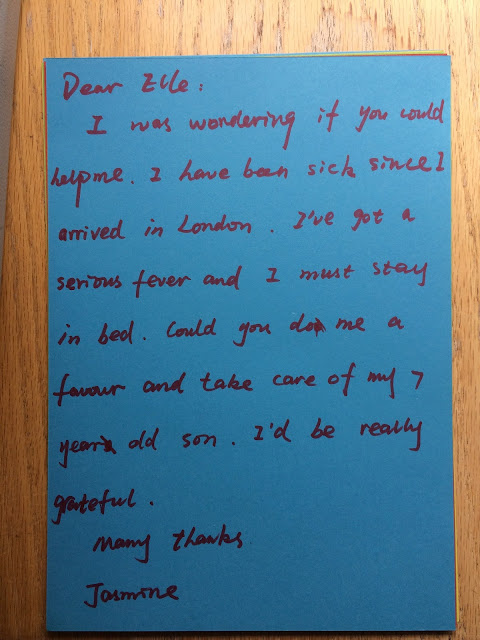 Dear Elle:
I was wondering if you could
help me. I have been sick since I
arrived in London. I've got a
serious fever and I must stay
in bed. Could you do me a
favour and take care of my 7
year old son. I'd be really
grateful.
Many thanks
Jasmine